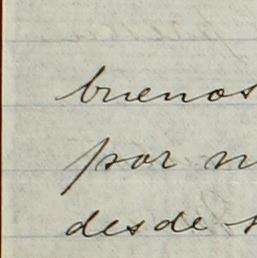 buenos
por
desde